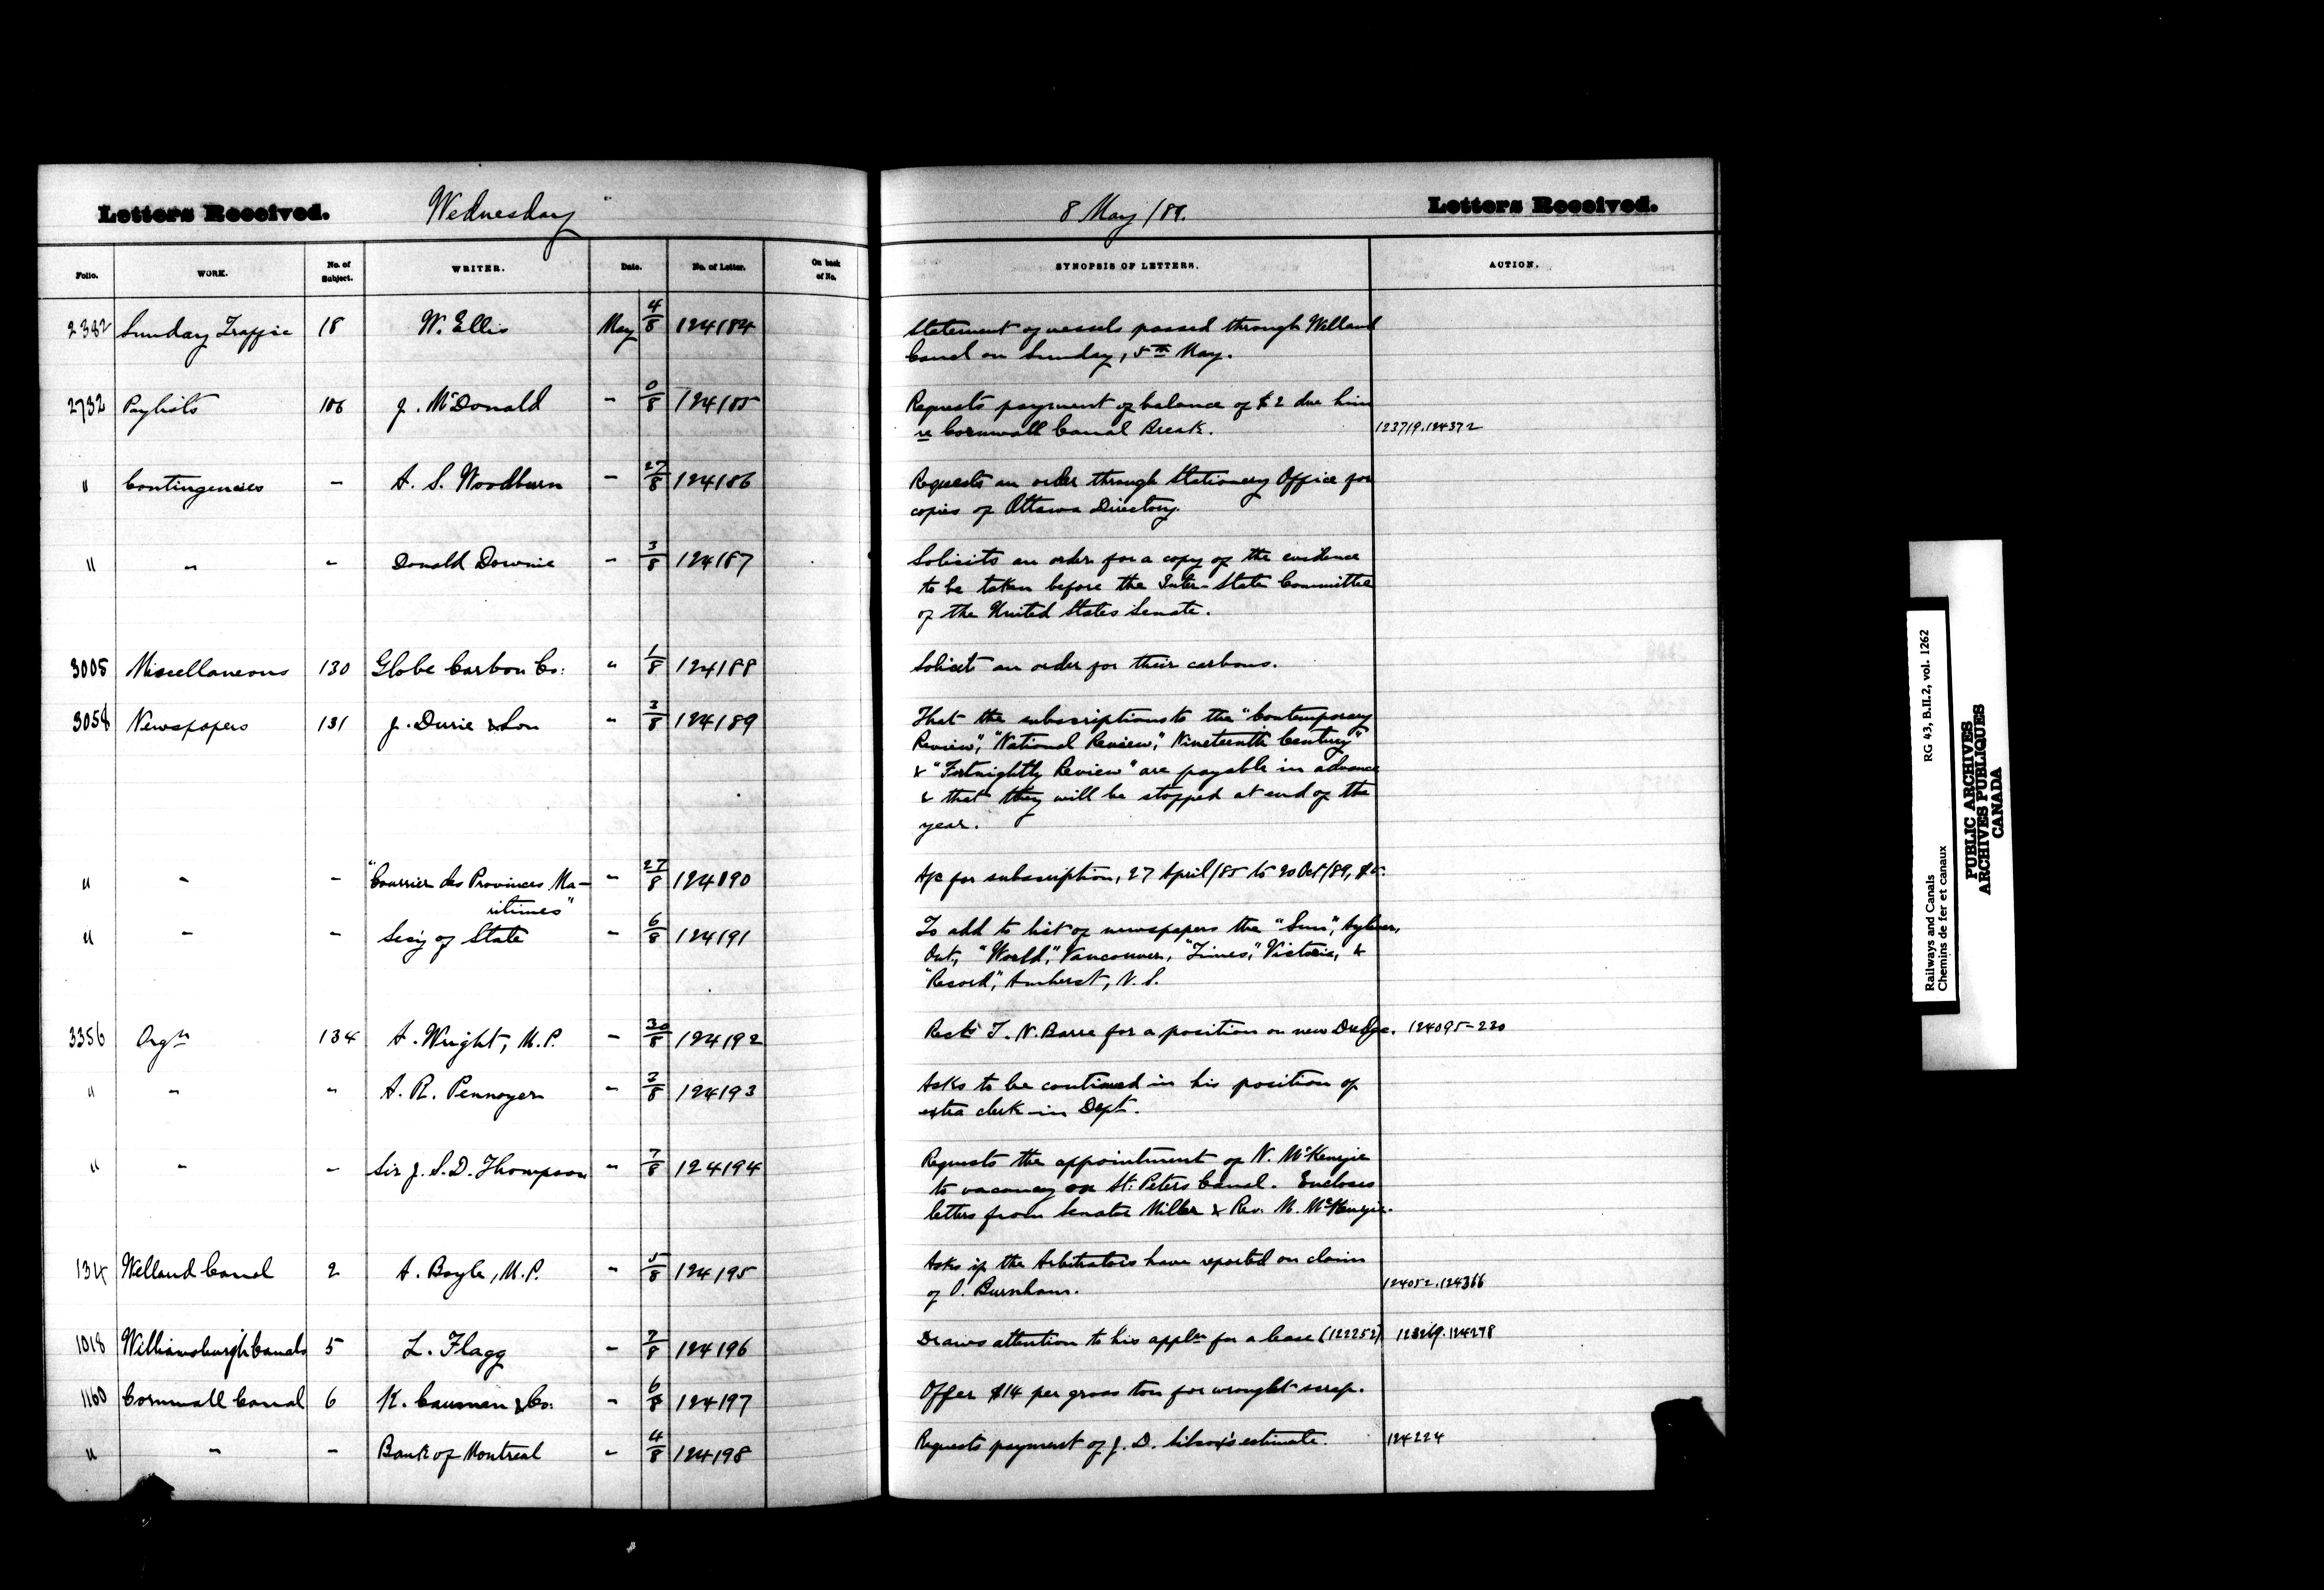 Letters Received. Wednesday 8 May /89. Letters Received.
Folio. WORK. No. of Subject. WRITER. Date. No. of Letter. On back of No. SYNOPSIS OF LETTERS. ACTION.
2382 Sunday Traffic 18 W. Ellis May 4/8 124184 Statement of vessels passed through Welland
Canal on Sunday, 5th May.
2732 Paylists 106 J. McDonald " 0/8 124185 Requests payment of balance of $2 due him
re Cornwall Canal Break. 123719.124372
" Contingencies " A. S. Woodburn " 27/8 124186 Requests an order through Stationery Office for
copies of Ottawa Directory.
" " " Donald Downie " 3/8 124187 Solicits an order for a copy of the evidence
to be taken before the Inter-State Committee
of the United States Senate.
3005 Miscellaneous 130 Globe Carbon Co: " 1/8 124188 Solicit an order for their carbons.
3058 Newspapers 131 J. Durie & Son " 3/8 124189 That the subscriptions to the "Contemporary
Review", "National Review", Nineteenth Century"
& "Fortnightly Review" are payable in advance
& that they will be stopped at end of the
year.
" " " "Courrier des Provinces Ma- " 27/8 124190 A/c for subscription, 27 April/85 to 20 Oct/89, $5.
ritimes"
" " " Secy of State " 6/8 124191 To add to list of newspapers the "Sun", Aylmer,
Ont., "World", Vancouver, "Times", Victoria, &
"Record", Amherst, N.S.
3356 Orgn 134 A. Wright, M.P. " 30/8 124192 Recds T. N. Barre for a position on new Dredge. 124095-220
" " " A. R. Pennoyer " 3/8 124193 Asks to be continued in his position of
extra clerk in Dept.
" " " Sir J. S. D. Thompson " 7/8 124194 Requests the appointment of N. McKenzie
to vacancy on St. Peters Canal. Encloses
letters from Senator Miller & Rev. M. McKenzie.
134 Welland Canal 2 A. Boyle, M.P. " 5/8 124195 Asks if the Arbitrators have reported on claim
of O. Burnham. 124052.124366
1018 Williamsburgh Canals 5 L. Flagg " 7/8 124196 Draws attention to his appln for a lease (122252) 123269.124278
1160 Cornwall Canal 6 K. Causman & Co: " 6/8 124197 Offer $14 per gross ton for wrought scrap.
" " " Bank of Montreal " 4/8 124198 Requests payment of J. D. Silcox's estimate. 124224
Railways and Canals RG 43, B.II.2, vol. 1262
Chemins de fer et canaux
PUBLIC ARCHIVES
ARCHIVES PUBLIQUES
CANADA